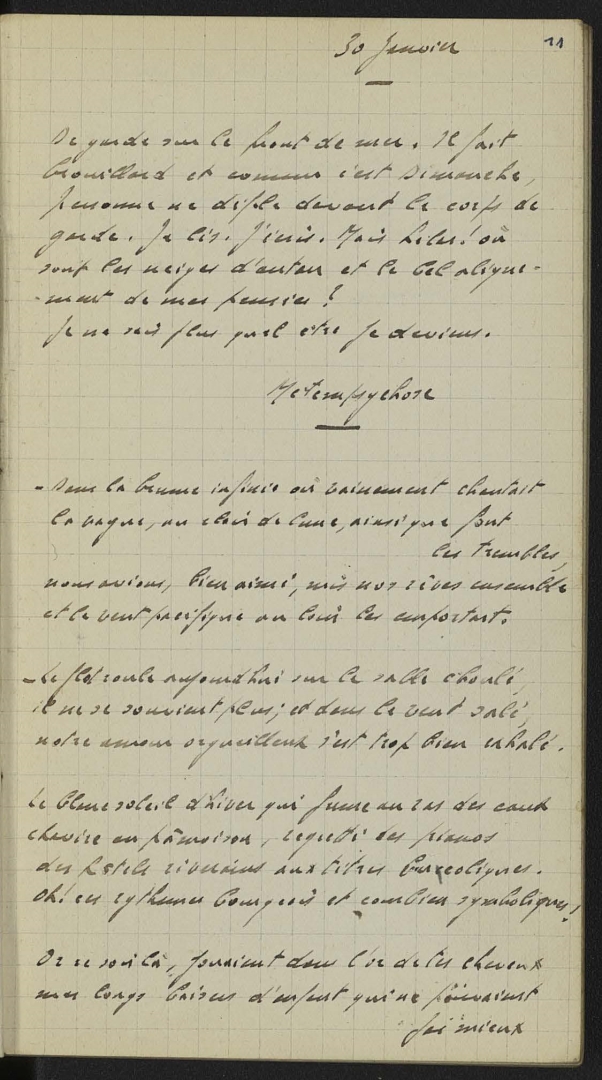 11
30 Janvier
De garde sur le front de mer. Il fait
brouillard et comme c'est Dimanche,
personne ne défile devant le corps de
garde. Je lis. J'écris. Mais hélas! où
sont les neiges d'antan et le bel aligne-
-ment de mes pensées?
Je ne sais plus quel être je deviens.
Metempsychose
- Dans la brume infinie où vainement chantait
la vague, au clair de lune, ainsi que font
les trembles,
nous avions, bien aimé, mis nos rêves ensemble
et le vent pacifique au loin les emportait.
- Le flot roule aujourd'hui sur le sable
il ne se souvient plus; et dans le vent salé,
notre amour orgueilleux s'est trop bien exhalé.
Le blanc soleil d'hiver qui fume au ras des eaux
chavire en pâmoison, des pianos
des hôtels riverains aux titres bucoliques.
Oh! ces rythmes bourgeois et combien symboliques!
Or ce soir là, jouaient dans l'or de tes cheveux
mes longs baisers d'enfant qui ne
mieux